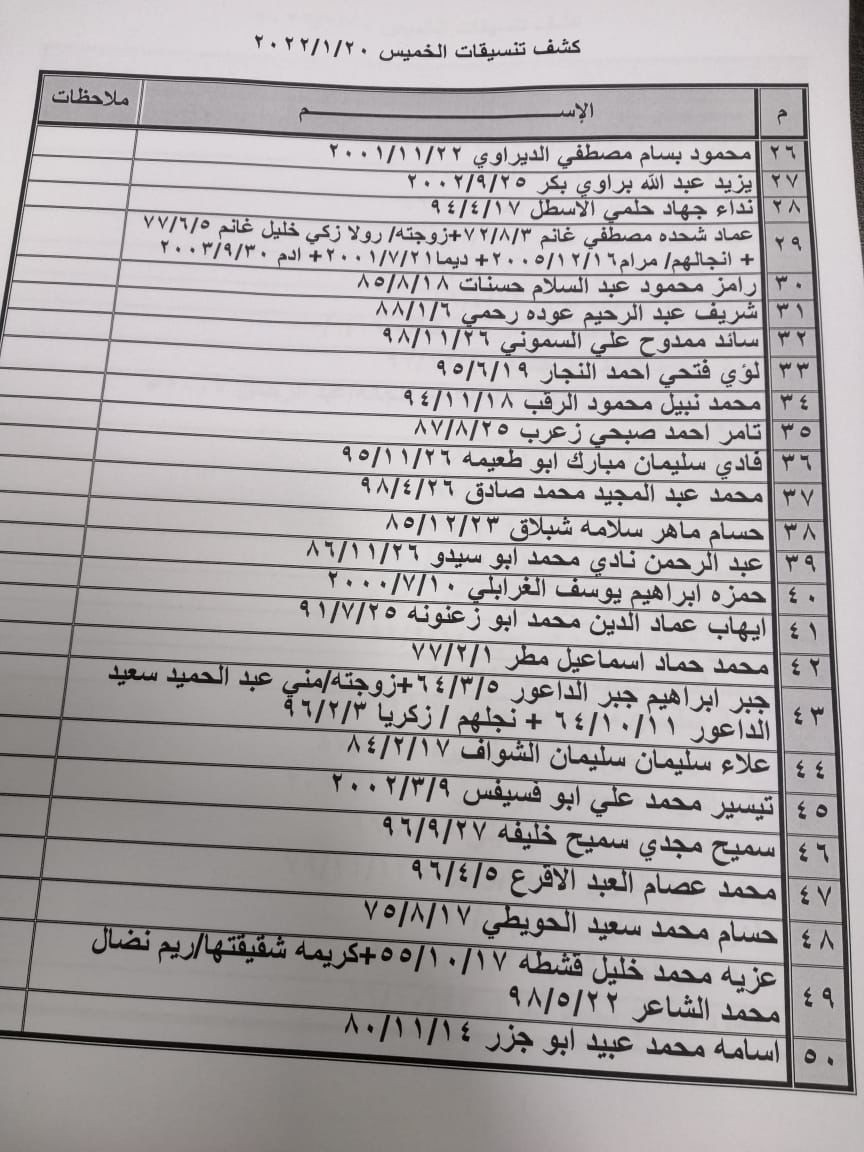 كشف تنسيقات الخميس ٢٠٢٢/١/٢٠
م الإســـــــم ملاحظات
٢٦ محمود بسام مصطفي الديراوي ٢٠٠١/١١/٢٢
٢٧ يزيد عبد الله براوي بكر ٢٠٠٢/٩/٢٥
٢٨ نداء جهاد حلمي الاسطل ٩٤/٤/١٧
٢٩ عماد شحده مصطفي غانم ٧٢/٨/٣+زوجته/ رولا زكي خليل غانم ٧٧/٦/٥
+ انجالهم/ مرام٢٠٠٥/١٢/١٦+ ديما٢٠٠١/٧/٢١+ ادم ٢٠٠٣/٩/٣٠
٣٠ رامز محمود عبد السلام حسنات ٨٥/٨/١٨
٣١ شريف عبد الرحيم عوده رحمي ٨٨/١/٦
٣٢ سائد ممدوح علي السموني ٩٨/١١/٢٦
٣٣ لؤي فتحي احمد النجار ٩٥/٦/١٩
٣٤ محمد نبيل محمود الرقب ٩٤/١١/١٨
٣٥ تامر احمد صبحي زعرب ٨٧/٨/٢٥
٣٦ فادي سليمان مبارك ابو طعيمه ٩٥/١١/٢٦
٣٧ محمد عبد المجيد محمد صادق ٩٨/٤/٢٦
٣٨ حسام ماهر سلامه شبلاق ٨٥/١٢/٢٣
٣٩ عبد الرحمن نادي محمد ابو سيدو ٨٦/١١/٢٦
٤٠ حمزه ابراهيم يوسف الغرابلي ٢٠٠٠/٧/١٠
٤١ ايهاب عماد الدين محمد ابو زعنونه ٩١/٧/٢٥
٤٢ محمد حماد اسماعيل مطر ٧٧/٢/١
٤٣ جبر ابراهيم جبر الداعور ٦٤/٣/٥+زوجته/مني عبد الحميد سعيد
الداعور ٦٤/١٠/١١ + نجلهم / زكريا ٩٦/٢/٣
٤٤ علاء سليمان سليمان الشواف ٨٤/٢/١٧
٤٥ تيسير محمد علي ابو فسيفس ٢٠٠٢/٣/٩
٤٦ سميح مجدي سميح خليفه ٩٦/٩/٢٧
٤٧ محمد عصام العبد الاقرع ٩٦/٤/٥
٤٨ حسام محمد سعيد الحويطي ٧٥/٨/١٧
٤٩ عزيه محمد خليل قشطه ٥٥/١٠/١٧+كريمه شقيقتها/ريم نضال
محمد الشاعر ٩٨/٥/٢٢
٥٠ اسامه محمد عبيد ابو جزر ٨٠/١١/١٤